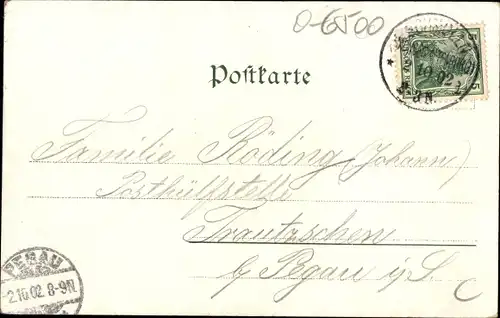 O-6500
Postkarte
10 02
3-4N.
5
Familie Röding (Johann)
Posthülfstelle
Trautzschen
b/ Pegau i/S.
PEGAU
2.10.02 8-9N